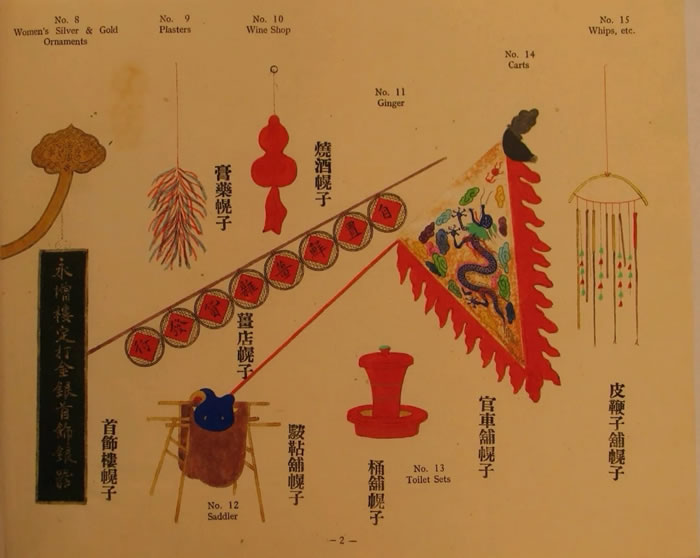 No. 8
Women's Silver & Gold
Ornaments
No. 9
Plasters
No. 10
Wine Shop
No. 11
Ginger
No. 14
Carts
No. 15
Whips, etc.
膏藥幌子
燒酒幌子
薑店幌子
永增樓定打金銀首飾銀
首飾樓幌子
鞍鞊舖幌子
桶舖幌子
官車舖幌子
皮鞭子舖幌子
自置
No. 12
Saddler
No. 13
Toilet Sets
— 2 —